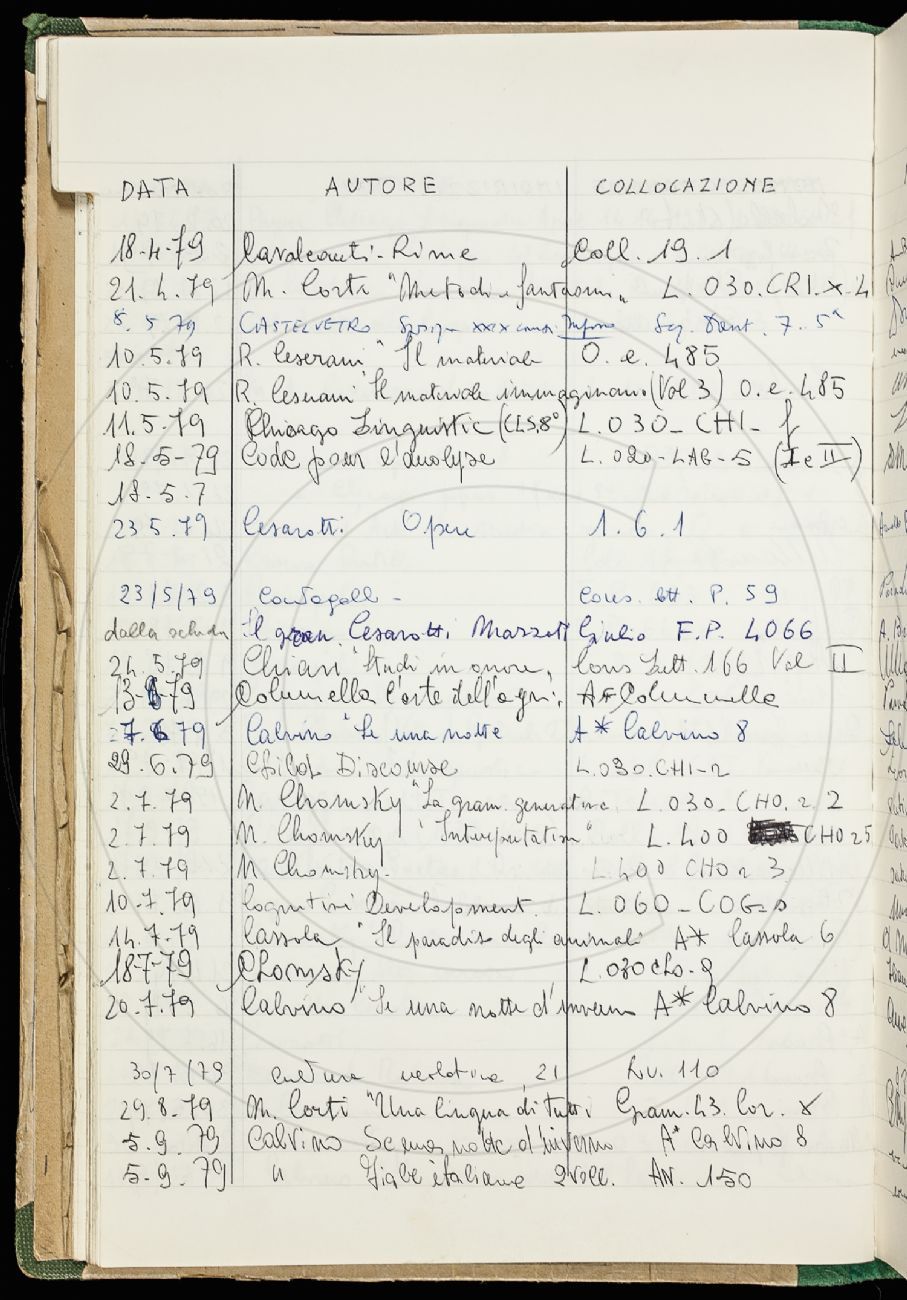 DATA AUTORE COLLOCAZIONE
18-4-79 Cavalcanti - Rime Coll. 19. 1
21. 4. 79 M. Corti "Metodi e fantasmi" L. 030. CRI. x. 4
8. 5 79 CASTELVETRO XXIX canti Inferno Dant. 7. 5ª
10. 5. 79 R. Ceserani "Il materiale O. e. 485
10. 5. 79 R. Ceserani Il materiale immaginario (Vol 3) O. e. 485
11. 5-79 Chicago Linguistic (CLS 8°) L. 030- CHI-
18-5-79 Code pour l'analyse L. 020-LAB-5 (I e II)
18. 5. 7
23 5. 79 Cesarotti Opere 1. 6. 1
23/5/79 Cons. lett. P. 59
dalla scheda Il gran Cesarotti Mazzoti Giulio F.P. 4066
24. 5. 79 Chiari "Studi in onore" Cons Lett. 166 Vol II
13-6-79 Columella l'arte dell'agri. A* Columella
6 79 Calvino "Se una notte A* Calvino 8
29. 6. 79 Discourse L. 030. CHI-2
2. 7. 79 N. Chomsky "La gram. generativa L. 030- CHO. 2. 2
2. 7. 79 N. Chomsky "Interpretation" L. 400 CHO 25
2. 7. 79 N Chomsky. L. 400 CHO 2 3
10-7. 79 Cognitive Development. L. 060-COG-
14. 7. 79 Cassola "Il paradiso degli animali A* Cassola 6
18-7-79 Chomsky L. 030 Cho- 9
20. 7. 79 Calvino "Se una notte d'inverno A* Calvino 8
30/7/79 Cultura 21 Lv. 110
29. 8. 79 M. Corti "Una lingua di tutti Gram. 43. Cor.
5. 9. 79 Calvino Se una notte d'inverno A* Calvino 8
5. 9. 79 " Fiabe italiane 2 voll. AN. 150